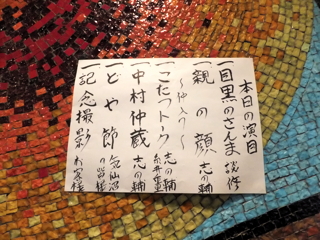 本日の演目
一目黒のさんま 談修
一親の顔 志の輔
〜仲入り〜
一こたつトーク 志の輔 糸井重里
一中村仲蔵 志の輔
一どや節 気仙沼の皆様
一記念撮影 お客様